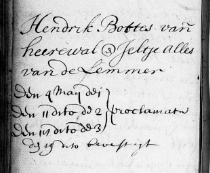 Hendrik Bottes van
heerewal & Jeltje Alles
van de Lemmer
den 4 May de 1
den 11 dito de 2 proclamatie
den 18 dito de 3
dito bevestigt